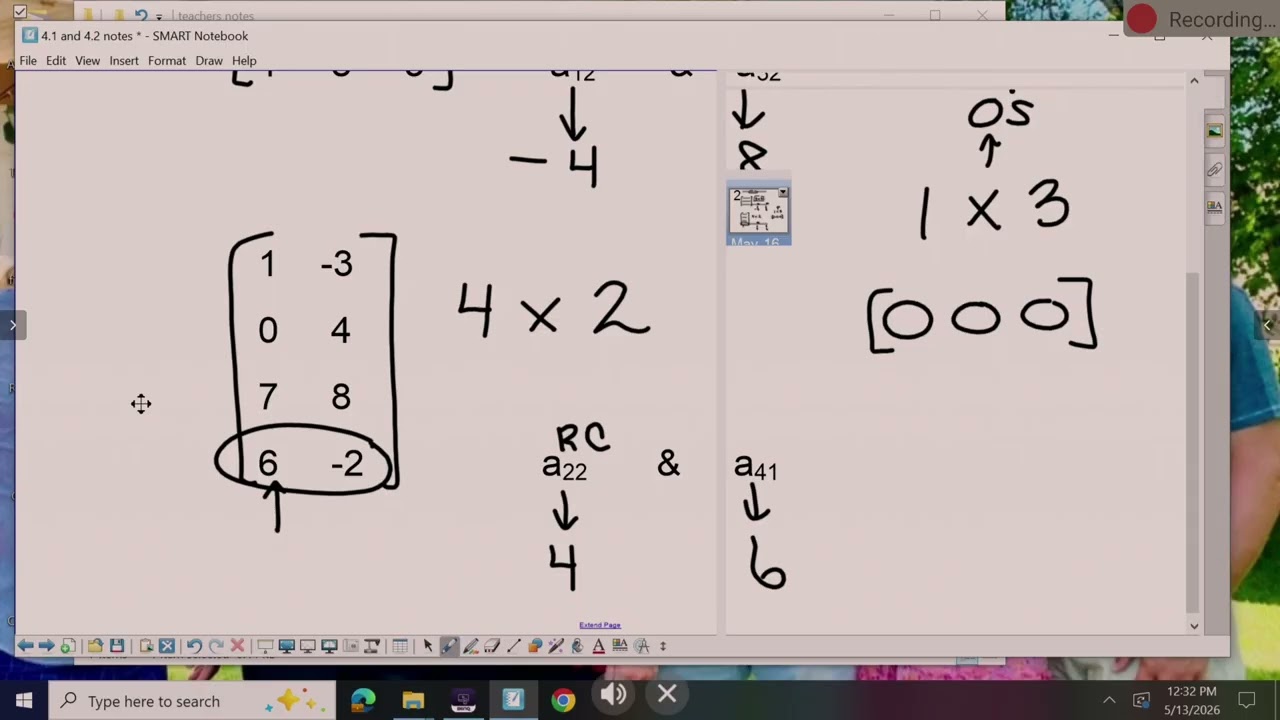 teachers notes
Recording...
4.1 and 4.2 notes * - SMART Notebook
File Edit View Insert Format Draw Help
a12 & a32
- 4 8
0's
1 x 3
[0 0 0]
2
May 16
1 -3
0 4
7 8
6 -2
4 x 2
RC
a22 & a41
4 6
Extend Page
Type here to search
12:32 PM
5/13/2026